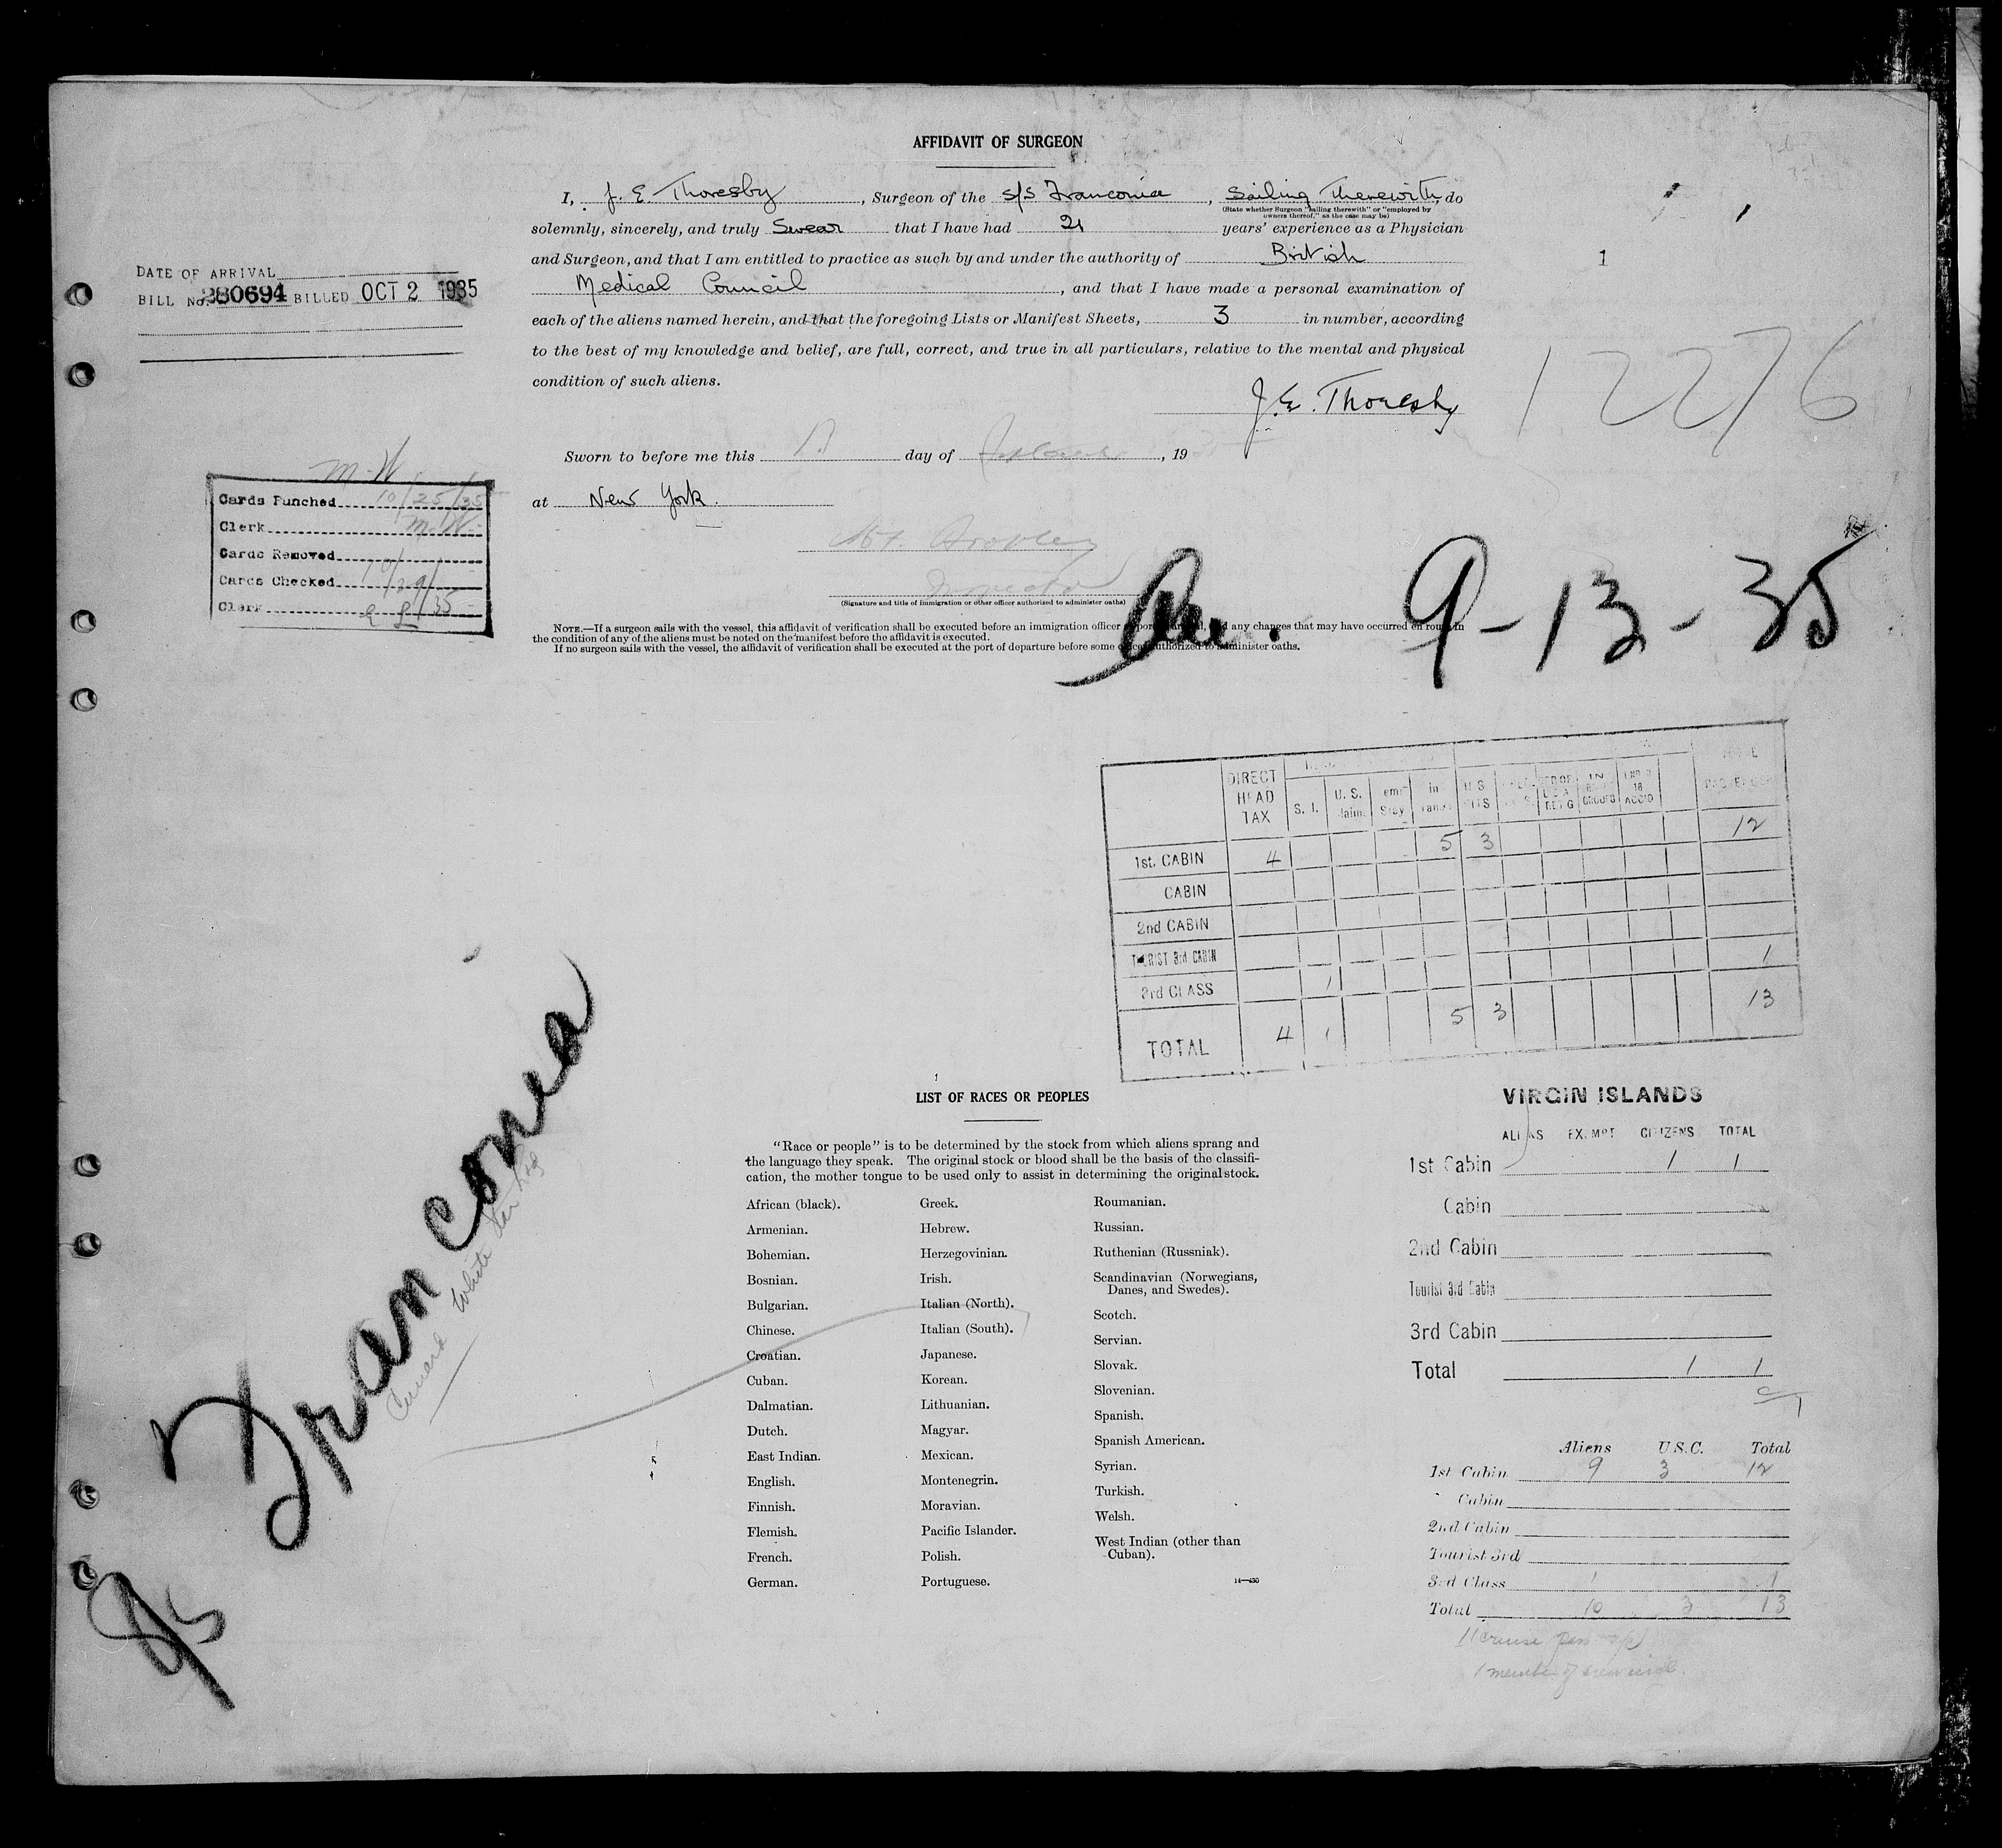 AFFIDAVIT OF SURGEON
I, J. E. Thoresby, Surgeon of the s/s Franconia, Sailing Therewith, do
(State whether Surgeon "sailing therewith" or "employed by
owners thereof," as the case may be)
solemnly, sincerely, and truly Swear that I have had 21 years' experience as a Physician
and Surgeon, and that I am entitled to practice as such by and under the authority of British
Medical Council, and that I have made a personal examination of
each of the aliens named herein, and that the foregoing Lists or Manifest Sheets, 3 in number, according
to the best of my knowledge and belief, are full, correct, and true in all particulars, relative to the mental and physical
condition of such aliens.
J. E. Thoresby
1
12276
Sworn to before me this day of , 19
at New York.
(Signature and title of immigration or other officer authorized to administer oaths)
NOTE.—If a surgeon sails with the vessel, this affidavit of verification shall be executed before an immigration officer any changes that may have occurred en route in
the condition of any of the aliens must be noted on the manifest before the affidavit is executed.
If no surgeon sails with the vessel, the affidavit of verification shall be executed at the port of departure before some officer authorized to administer oaths.
DATE OF ARRIVAL
BILL No. 280694 BILLED OCT 2 1935
M-W
Cards Punched 10/25/35
Clerk M-W-
Cards Removed
Cards Checked 10/29/35
Clerk
9-13-35
DIRECT HEAD TAX S. I. U. S. in
1st. CABIN 4 5 3 12
CABIN
2nd CABIN
TOURIST 3rd CABIN
3rd CLASS 1 1
TOTAL 4 1 5 3 13
Franconia
Cunard White Star Ltd
LIST OF RACES OR PEOPLES
"Race or people" is to be determined by the stock from which aliens sprang and
the language they speak. The original stock or blood shall be the basis of the classifi-
cation, the mother tongue to be used only to assist in determining the original stock.
African (black).
Armenian.
Bohemian.
Bosnian.
Bulgarian.
Chinese.
Croatian.
Cuban.
Dalmatian.
Dutch.
East Indian.
English.
Finnish.
Flemish.
French.
German.
Greek.
Hebrew.
Herzegovinian.
Irish.
Italian (North).
Italian (South).
Japanese.
Korean.
Lithuanian.
Magyar.
Mexican.
Montenegrin.
Moravian.
Pacific Islander.
Polish.
Portuguese.
Roumanian.
Russian.
Ruthenian (Russniak).
Scandinavian (Norwegians,
Danes, and Swedes).
Scotch.
Servian.
Slovak.
Slovenian.
Spanish.
Spanish American.
Syrian.
Turkish.
Welsh.
West Indian (other than
Cuban).
14—430
VIRGIN ISLANDS
ALIENS EXEMPT CITIZENS TOTAL
1st Cabin 1 1
Cabin
2nd Cabin
Tourist 3rd Cabin
3rd Cabin
Total 1 1
Aliens U.S.C. Total
1st Cabin 9 3 12
Cabin
2nd Cabin
Tourist 3rd
3rd Class 1 1
Total 10 3 13
11 cruise
1 member of